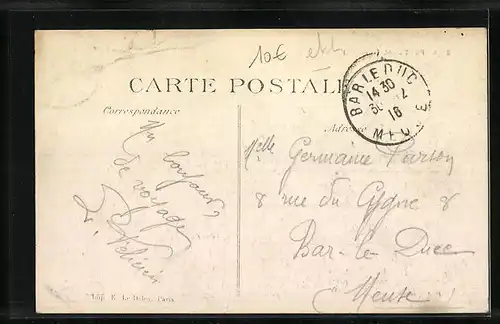 10€
CARTE POSTALE
BAR LE DUC
14 30
30
16
MEUSE
Correspondance
Adresse
Un bonjour
de voyage
Félicien
Melle Germaine
8 rue du Cygne 8
Bar-le-Duc
Meuse
Imp. E. Le Deley, Paris